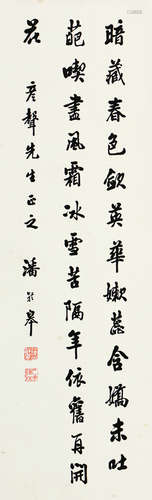 暗藏春色歛英華嫩蕊含嬌未吐
葩喫盡風霜冰雪苦隔年依舊再開
花
彥聲先生正之 潘齡皋